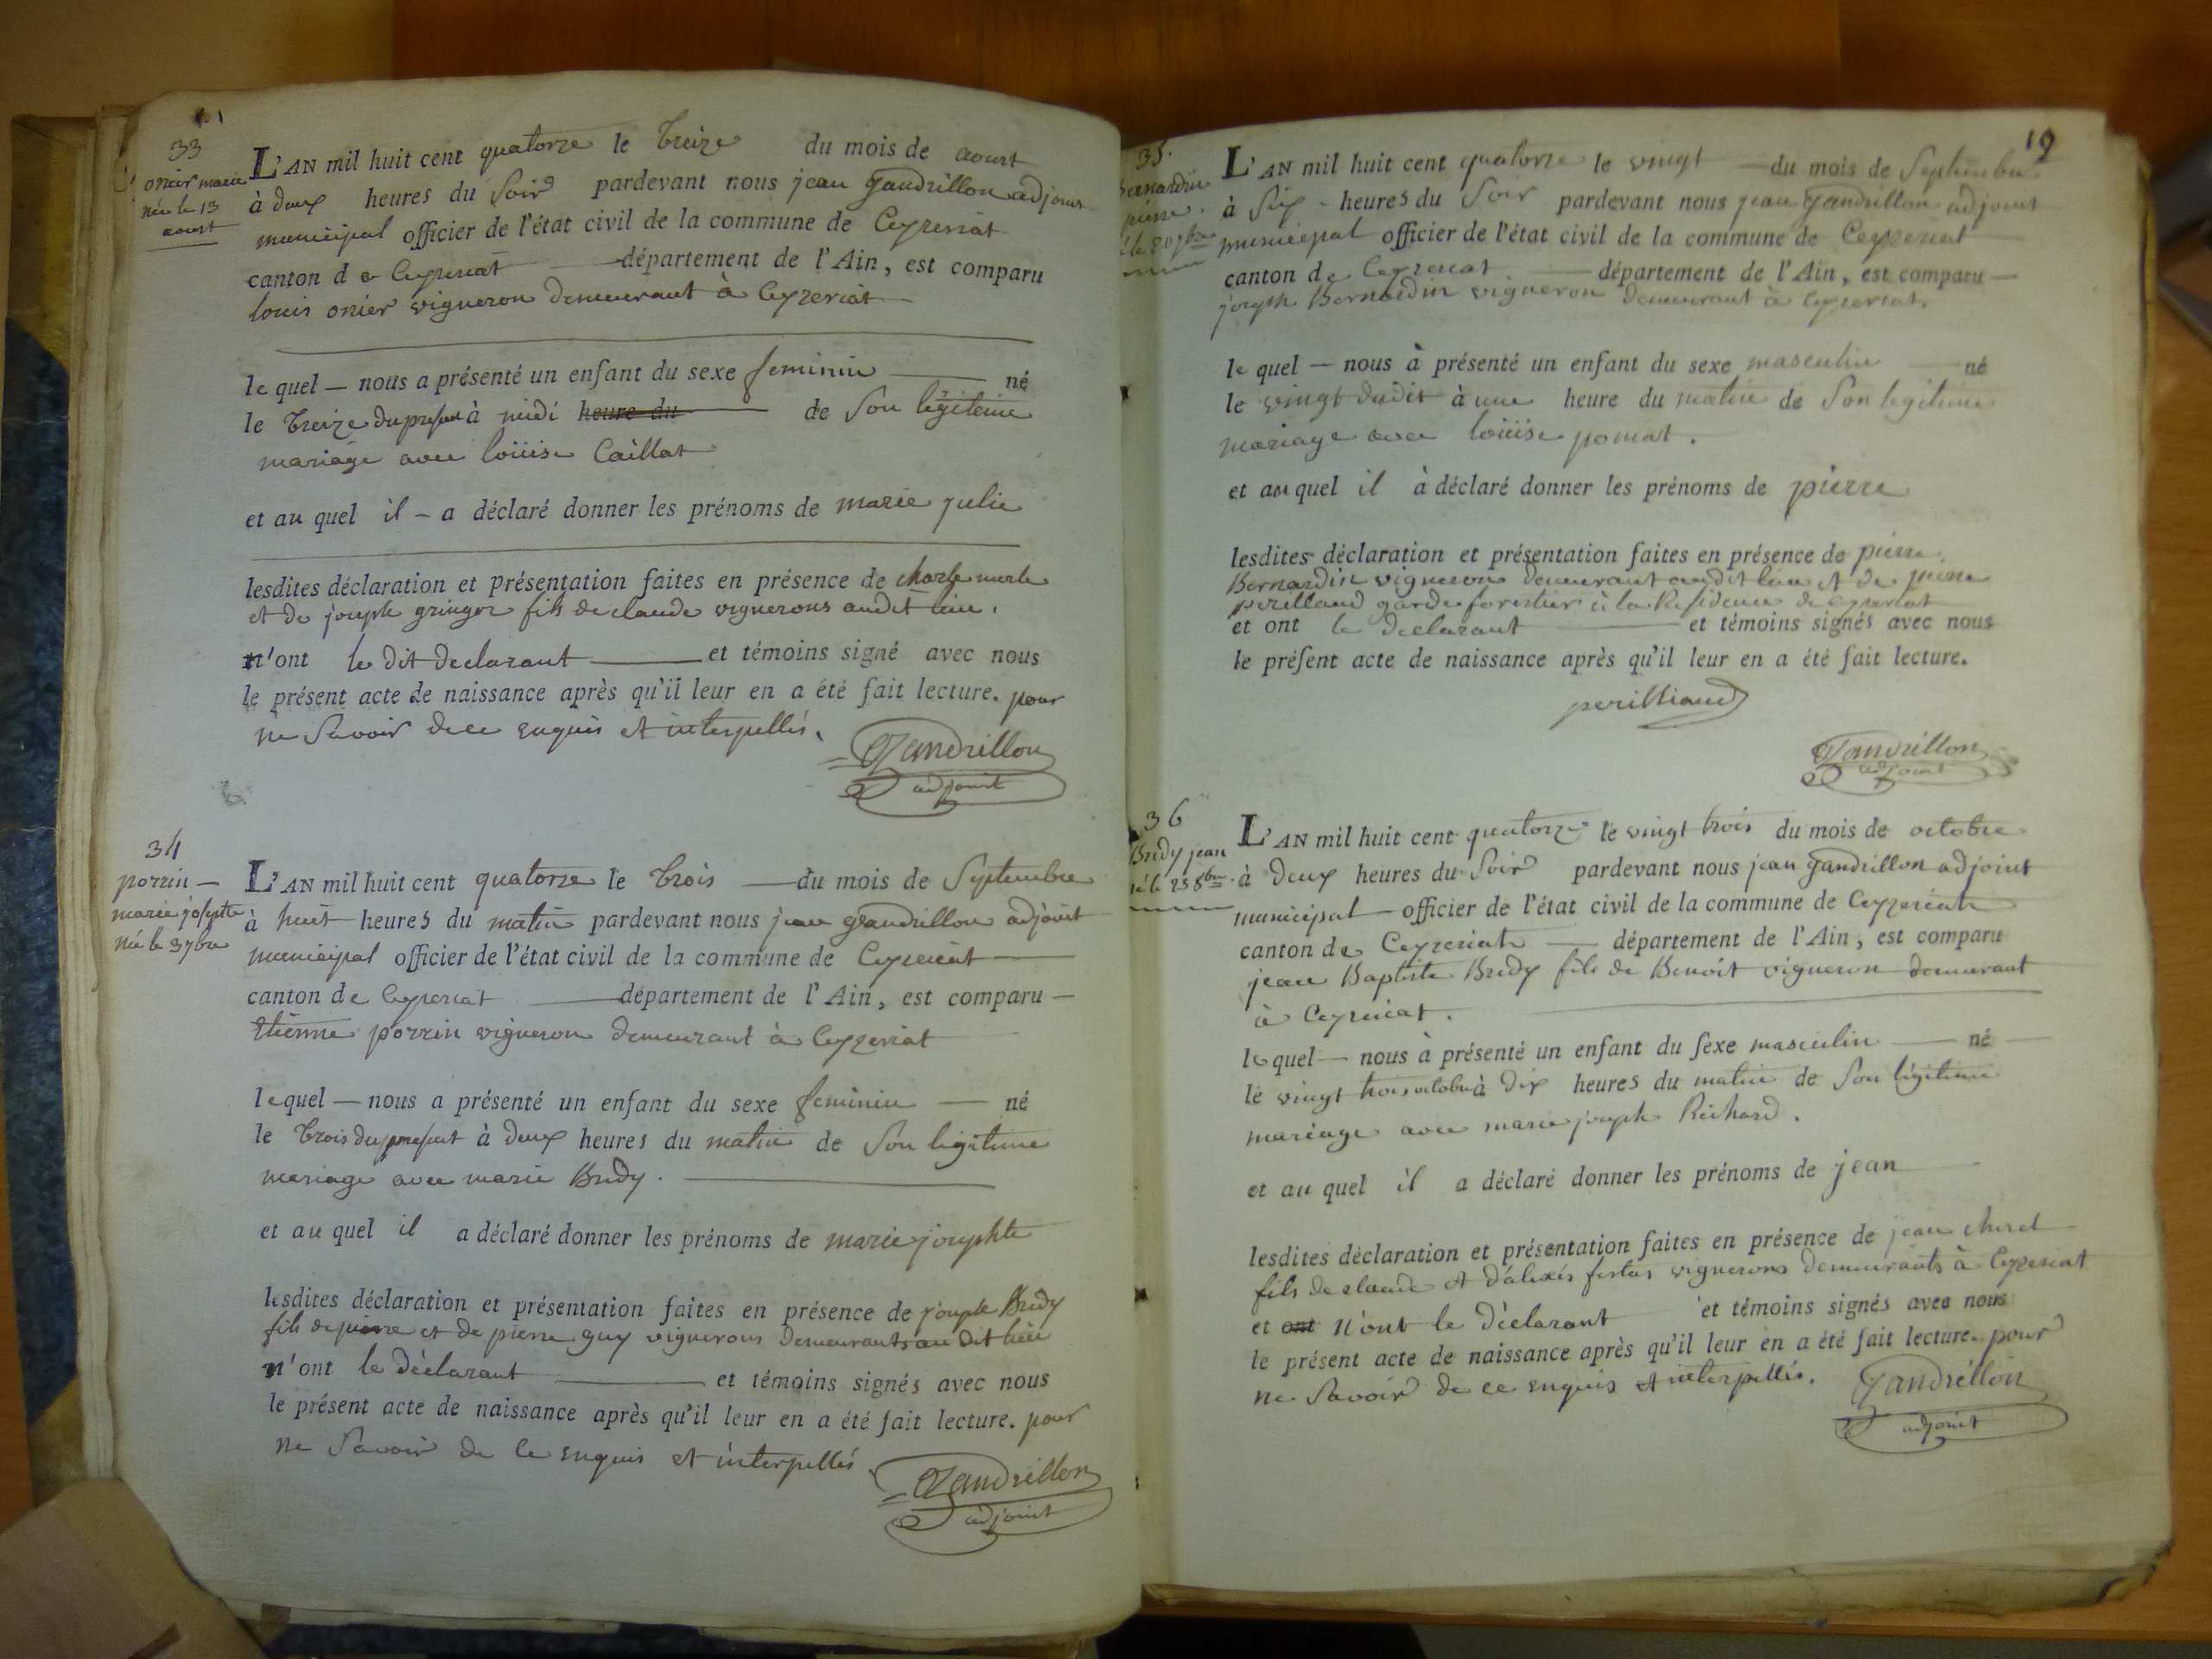 33
onier marie
née le 13
aoust
L'AN mil huit cent quatorze le treize du mois de aoust
à deux heures du soir pardevant nous jean gandrillon adjoint
municipal officier de l'état civil de la commune de Ceyzeriat
canton de Ceyzeriat département de l'Ain, est comparu
louis onier vigneron demeurant à Ceyzeriat
le quel — nous a présenté un enfant du sexe feminin né
le treize du present à midi heure du de son légitime
mariage avec louise Caillat
et au quel il - a déclaré donner les prénoms de marie julie
lesdites déclaration et présentation faites en présence de charle merle
et de joseph gringoz fils de claude vignerons audit lieu.
n'ont le dit declarant et témoins signé avec nous
le présent acte de naissance après qu'il leur en a été fait lecture. pour
ne savoir de ce enquis et interpellés.
Gandrillon
adjoint
34
porrin —
marie josephte
née le 3 7bre
L'AN mil huit cent quatorze le trois du mois de Septembre
à huit heures du matin pardevant nous jean gandrillon adjoint
municipal officier de l'état civil de la commune de Ceyzeriat
canton de Ceyzeriat département de l'Ain, est comparu —
etienne porrin vigneron demeurant à Ceyzeriat
lequel — nous a présenté un enfant du sexe feminin — né
le trois du present à deux heures du matin de son légitime
mariage avec marie Bredy.
et au quel il a déclaré donner les prénoms de marie josephte
lesdites déclaration et présentation faites en présence de joseph Bredy
fils de pierre et de pierre guy vignerons demeurants au dit lieu
n'ont le déclarant et témoins signés avec nous
le présent acte de naissance après qu'il leur en a été fait lecture. pour
ne savoir de ce enquis et interpellés.
Gandrillon
adjoint
19
35.
Bernardin
pierre.
né le 20 7bre
L'AN mil huit cent quatorze le vingt du mois de Septembre
à six - heures du soir pardevant nous jean gandrillon adjoint
municipal officier de l'état civil de la commune de Ceyzeriat
canton de Ceyzeriat. département de l'Ain, est comparu —
joseph Bernardin vigneron demeurant à Ceyzeriat.
le quel — nous à présenté un enfant du sexe masculin né
le vingt dudit à une heure du matin de son legitime
mariage avec louise pomat.
et au quel il à déclaré donner les prénoms de pierre
lesdites déclaration et présentation faites en présence de pierre
Bernardin vigneron demeurant audit lieu et de pierre
perilland garde forestier à la Residence de Ceyzeriat
et ont le declarant et témoins signés avec nous
le présent acte de naissance après qu'il leur en a été fait lecture.
perilliand
Gandrillon
adjoint
36
Bredy jean
né le 23 8bre.
L'AN mil huit cent quatorze le vingt trois du mois de octobre
à deux heures du soir pardevant nous jean gandrillon adjoint
municipal — officier de l'état civil de la commune de Ceyzeriat
canton de Ceyzeriat département de l'Ain, est comparu
jean Baptiste Bredy fils de Benoit vigneron demeurant
à Ceyzeriat.
lequel — nous à présenté un enfant du sexe masculin né
le vingt trois octobre à dix heures du matin de son légitime
mariage avec marie joseph Richard.
et au quel il a déclaré donner les prénoms de jean
lesdites déclaration et présentation faites en présence de jean chorel
fils de claude et d'alexis festas vignerons demeurants à Ceyzeriat
et ont n'ont le déclarant et témoins signés avec nous
le présent acte de naissance après qu'il leur en a été fait lecture. pour
ne savoir de ce enquis et interpellés.
Gandrillon
adjoint